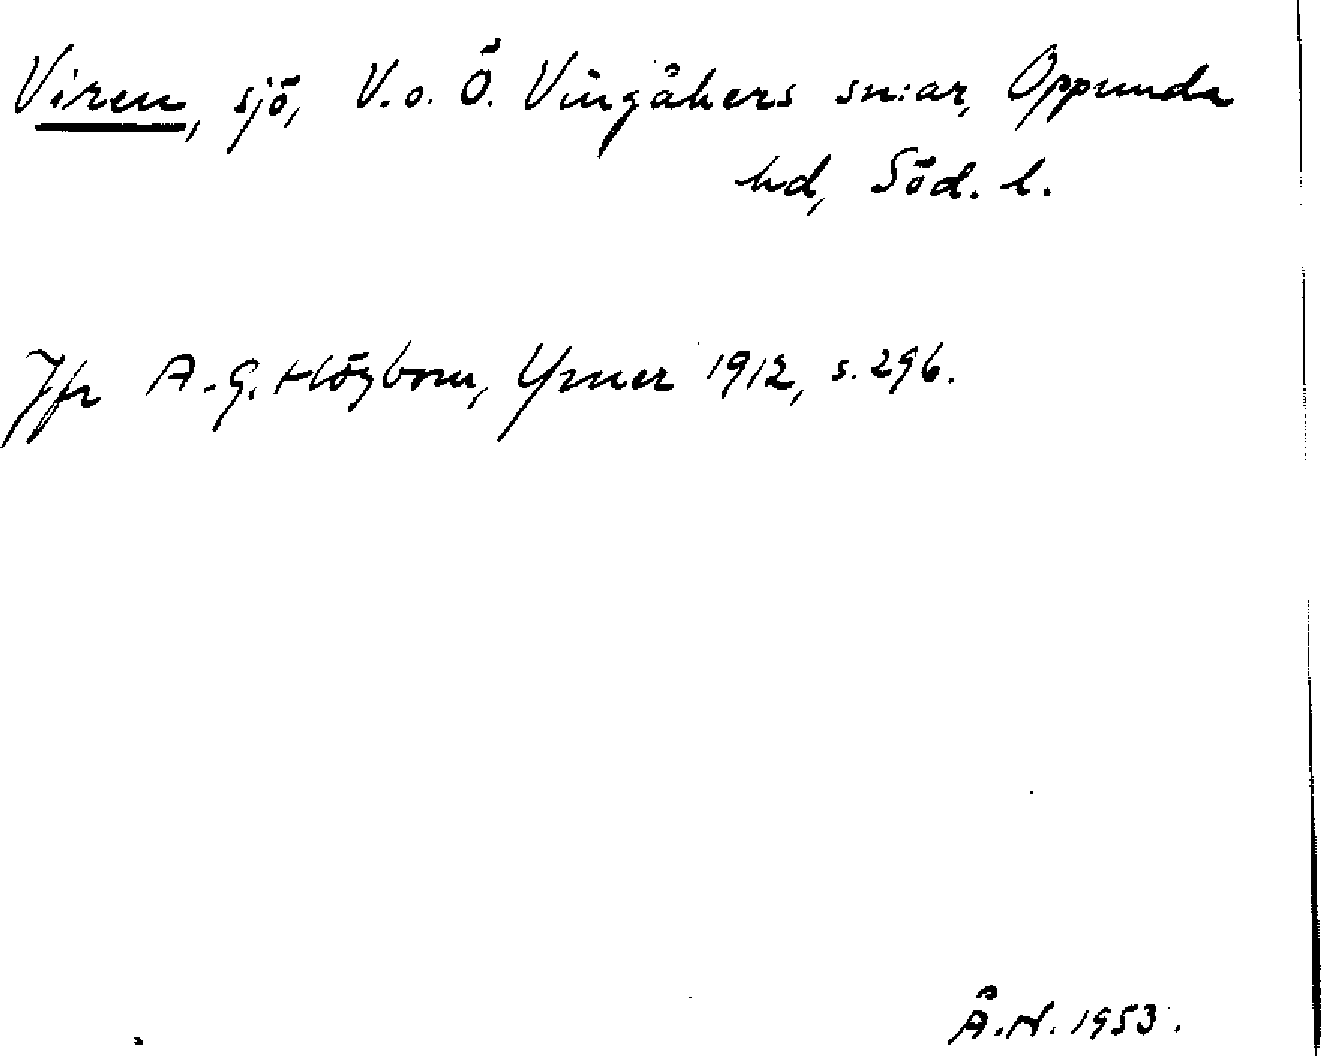 Viren, sjö, V. o. Ö. Vingåkers sn:ar, Oppunda
hd, Söd. l.
Jfr A. G. Högbom, Ymer 1912, s. 296.
Å. N. 1953.